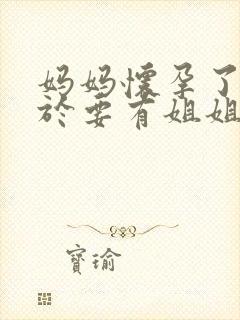 妈妈懷孕了
於要有姐姐
寶瑜